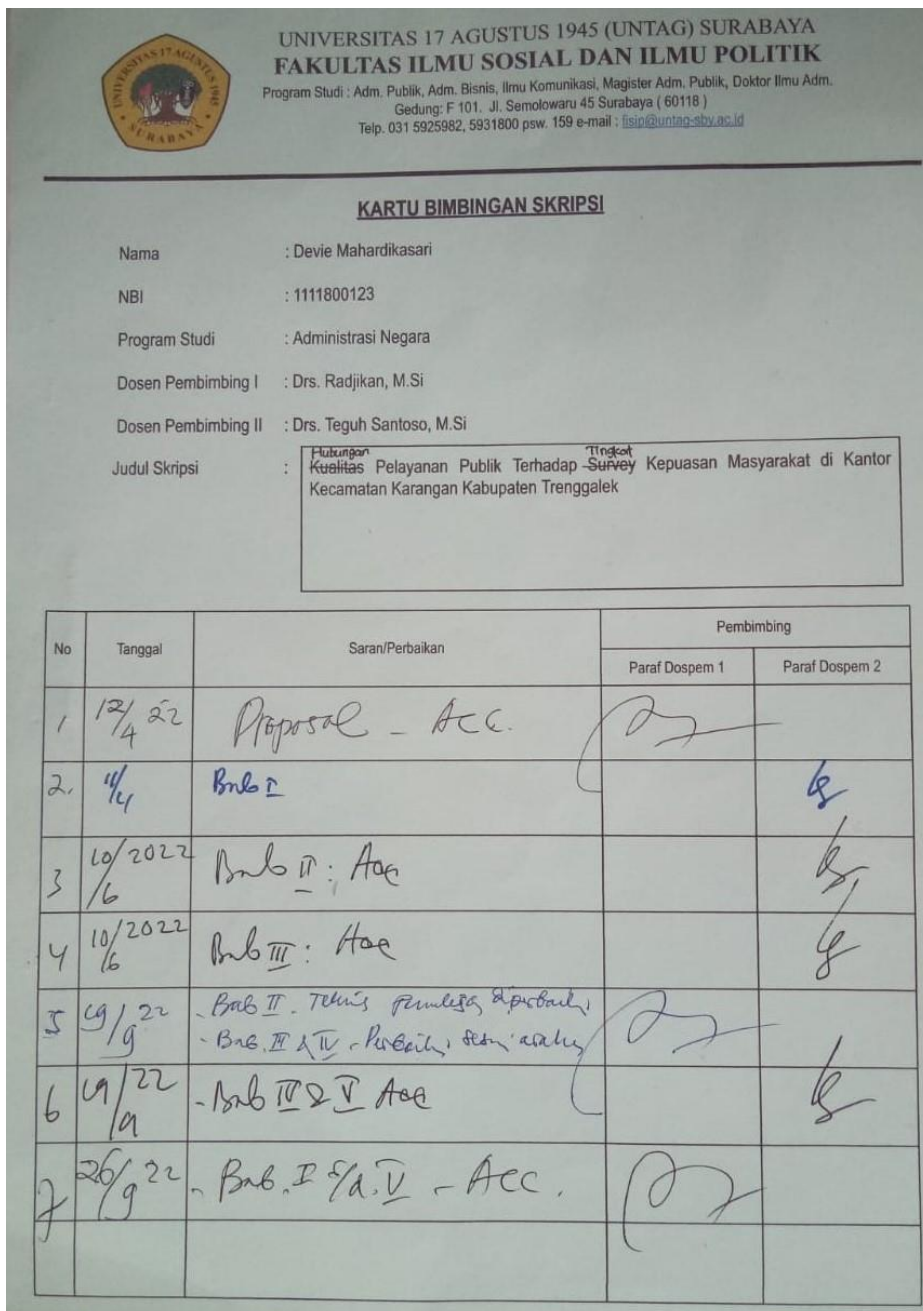 UNIVERSITAS 17 AGUSTUS 1945 (UNTAG) SURABAYA
FAKULTAS ILMU SOSIAL DAN ILMU POLITIK
Program Studi : Adm. Publik, Adm. Bisnis, Ilmu Komunikasi, Magister Adm. Publik, Doktor Ilmu Adm.
Gedung: F 101. Jl. Semolowaru 45 Surabaya ( 60118 )
Telp. 031 5925982, 5931800 psw. 159 e-mail : fisip@untag-sby.ac.id
UNIVERSITAS 17 AGUSTUS 1945
SURABAYA
KARTU BIMBINGAN SKRIPSI
Nama : Devie Mahardikasari
NBI : 1111800123
Program Studi : Administrasi Negara
Dosen Pembimbing I : Drs. Radjikan, M.Si
Dosen Pembimbing II : Drs. Teguh Santoso, M.Si
Hubungan Tingkat
Judul Skripsi : Kualitas Pelayanan Publik Terhadap Survey Kepuasan Masyarakat di Kantor
Kecamatan Karangan Kabupaten Trenggalek
No Tanggal Saran/Perbaikan Pembimbing
Paraf Dospem 1 Paraf Dospem 2
1 12/4 22 Proposal - Acc.
2. Bab I
3 10/2022 /6 Bab II : Acc
4 10/2022 /6 Bab III : Acc
5 19/9 22 - Bab II. Teknis diperbaiki
- Bab. III & IV - Perbaiki
6 19/22 /9 - Bab IV & V Acc
7 26/9 22 - Bab. I s/d. V - Acc.